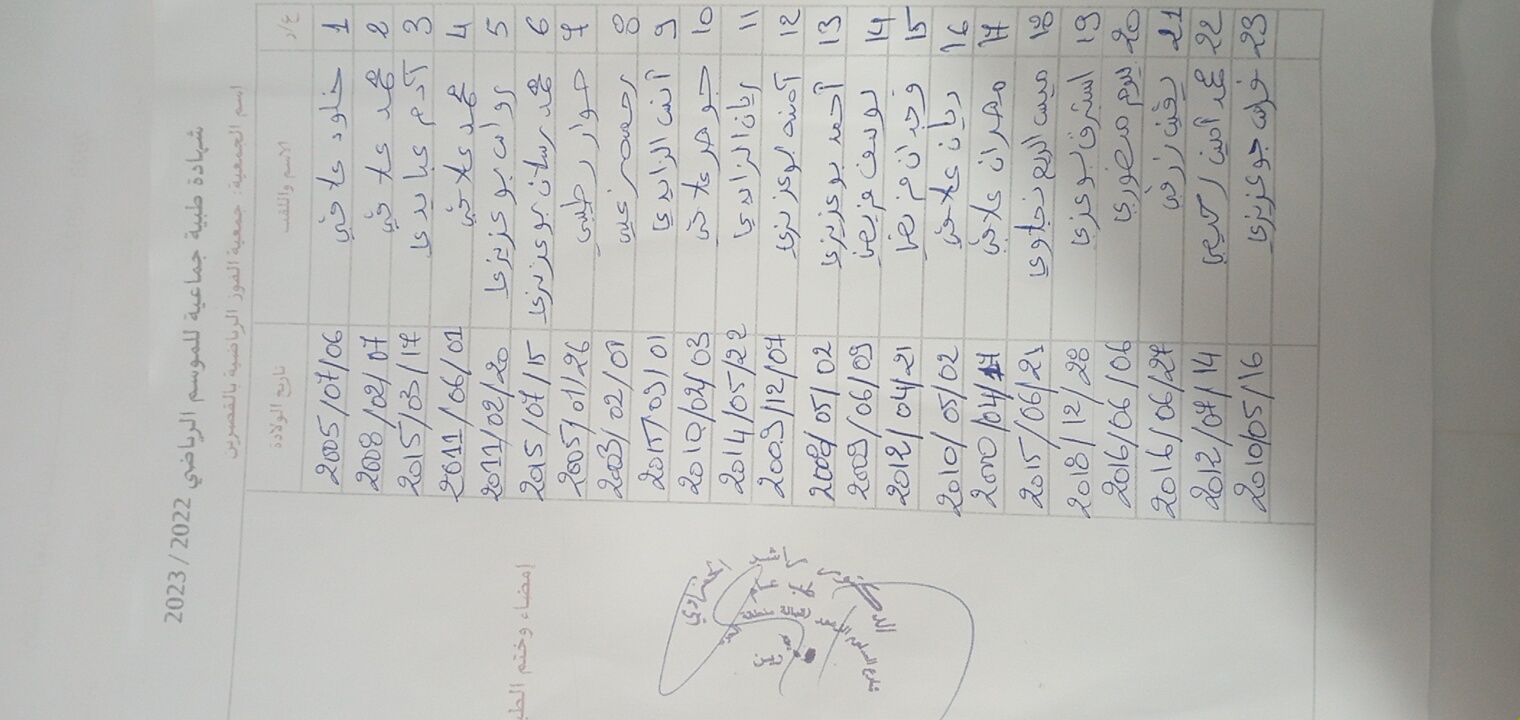 شهادة طبية جماعية للموسم الرياضي 2023/2022
اسم الجمعية: جمعية الفوز الرياضية بالقصرين
ع/د الاسم واللقب تاريخ الولادة
1 خلود علاقي 2005/07/06
2 محمد علاقي 2008/02/07
3 آدم عبايدي 2015/03/17
4 محمد علاقي 2011/06/01
5 روان بوعزيزي 2011/02/20
6 محمد رسلان بوعزيزي 2015/07/15
7 حوار رحيمي 2005/01/26
8 2003/02/01
9 آنس الزايدي 2015/09/01
10 جوهر علاقي 2010/02/03
11 ريان الزايدي 2014/05/22
12 آمنة بوعزيزي 2009/12/07
13 أحمد بوعزيزي 05/02
14 يوسف 2009/06/09
15 وجدان 2012/04/21
16 ريان علاقي 2010/05/02
17 مهران علاقي 2000/04/17
18 ميس الريم نجلاوي 2015/06/21
19 2018/12/28
20 منصوري 2016/06/06
21 2016/06/27
22 محمد أمين 2012/07/14
23 فراس بوعزيزي 2010/05/16
إمضاء وختم الط
الدكتور راشد